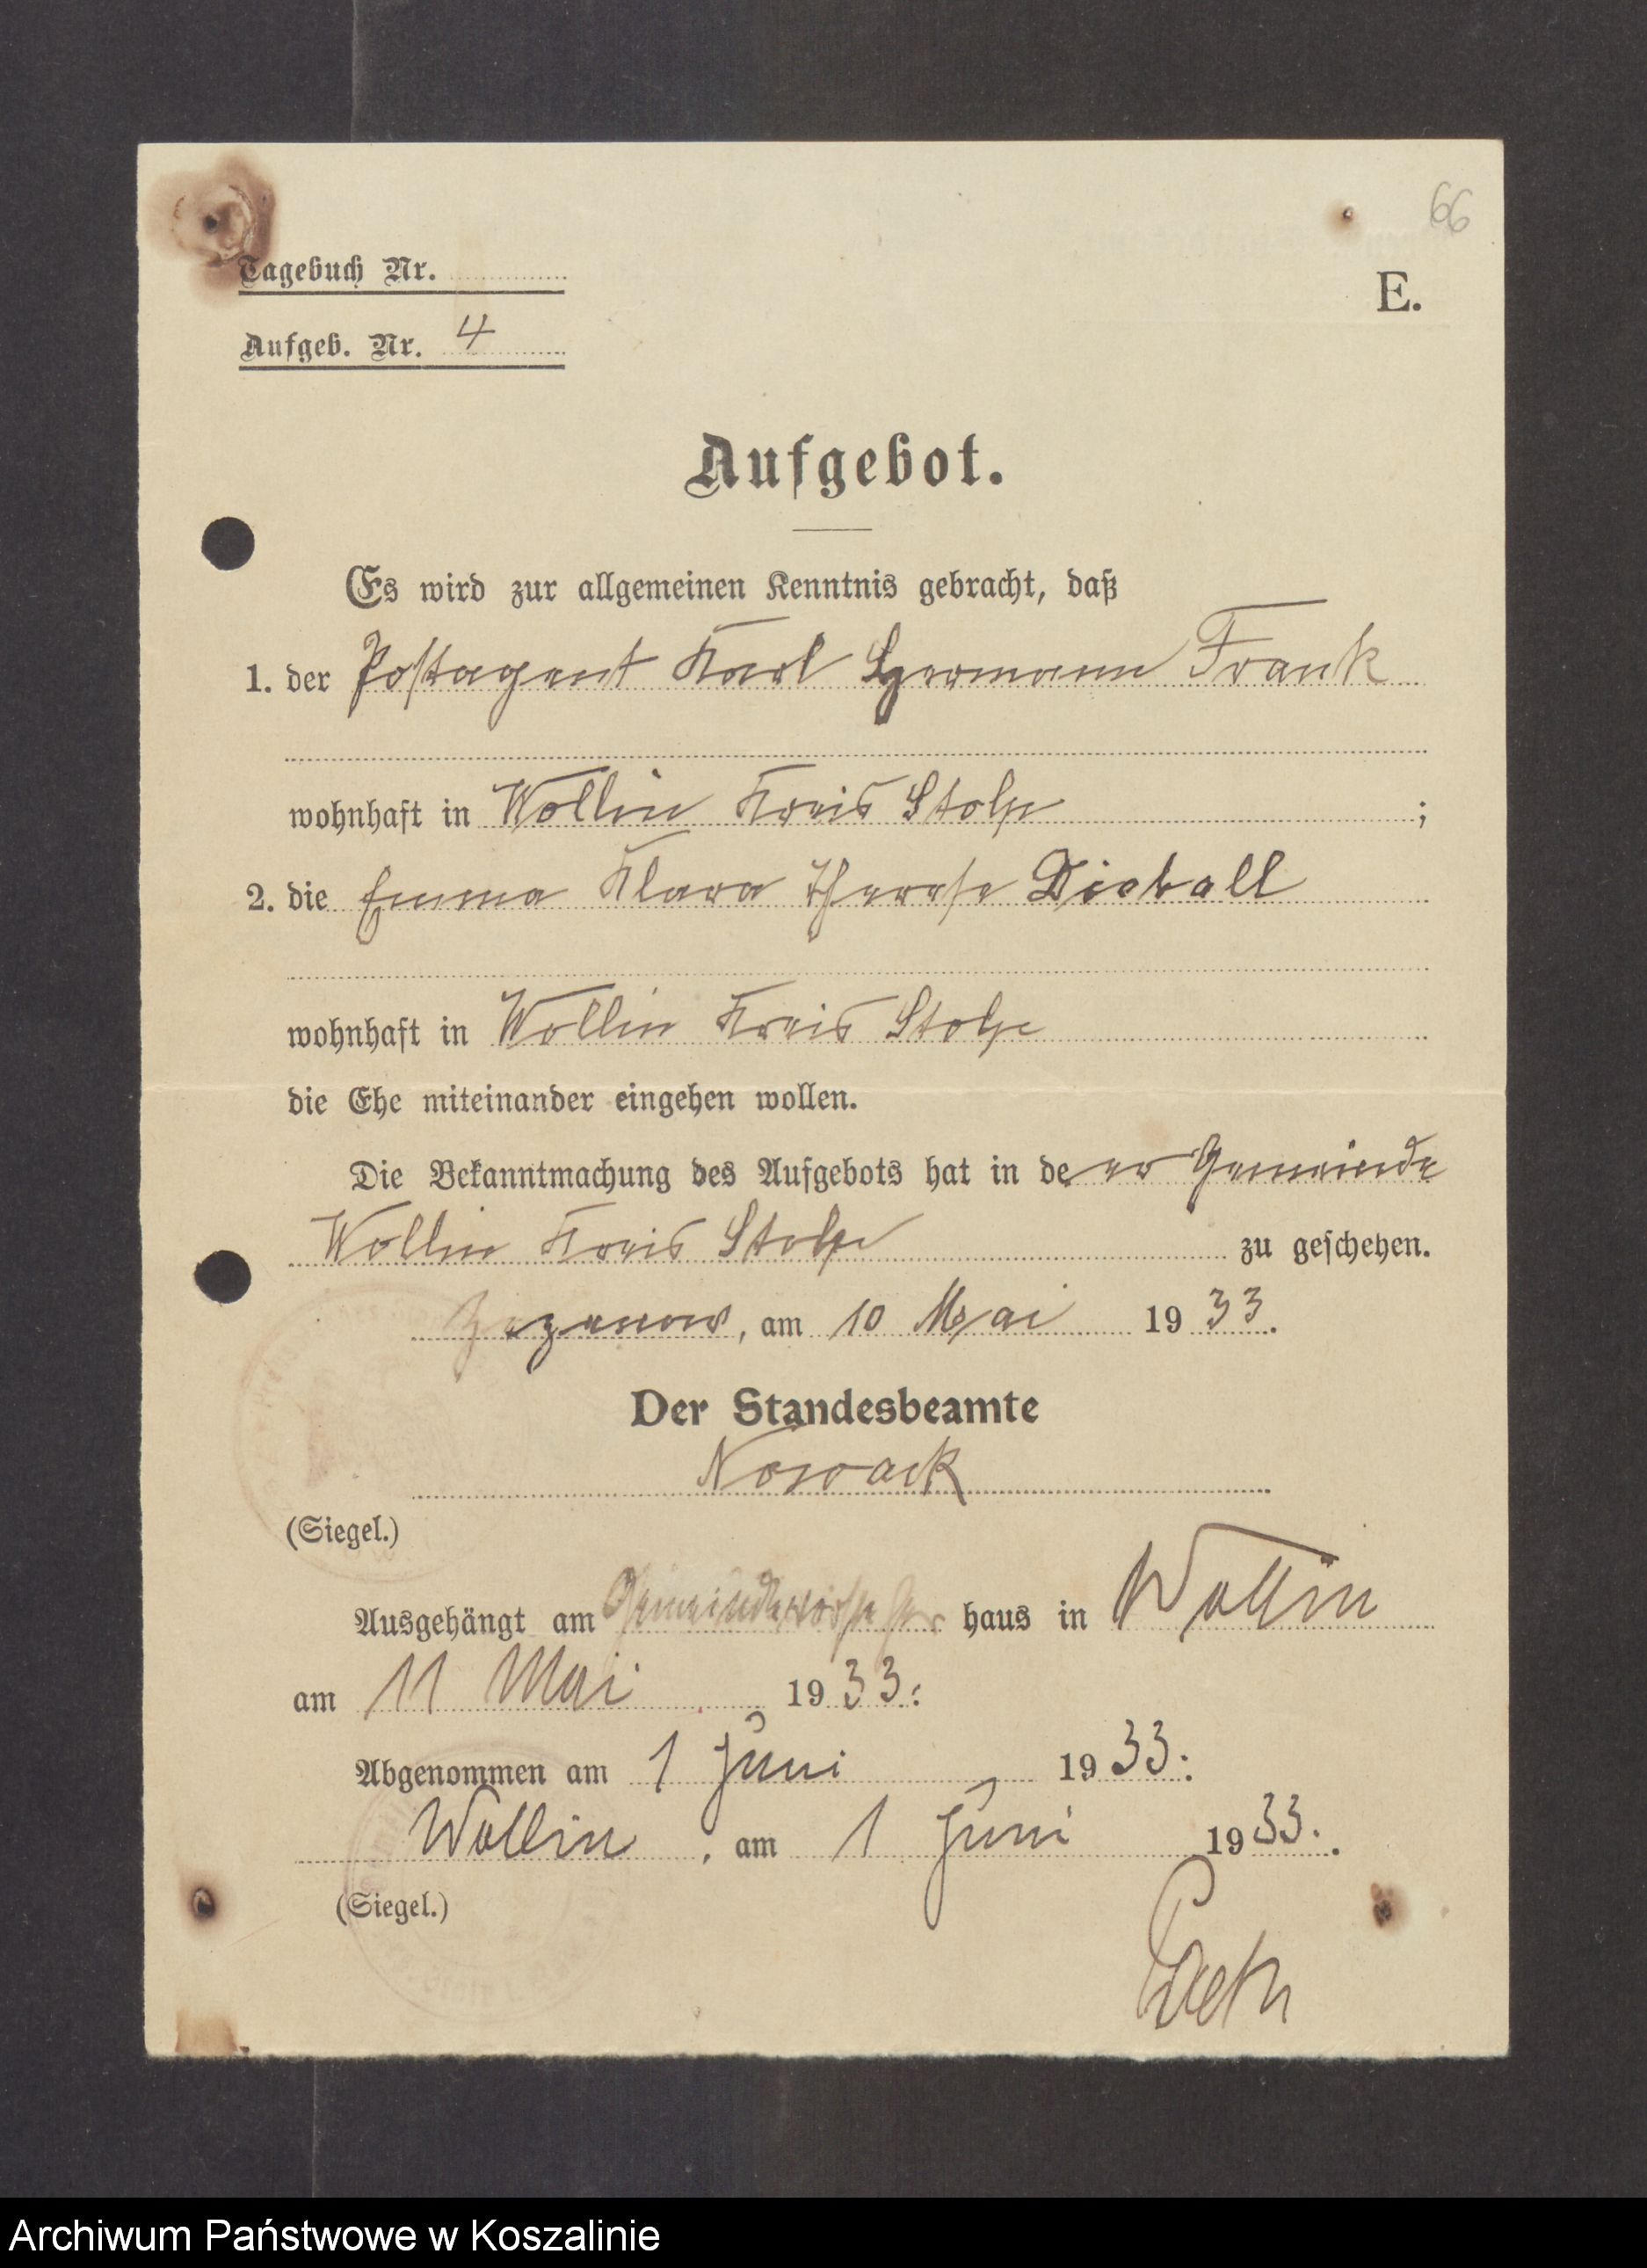 66
Tagebuch Nr.
E.
Aufgeb. Nr. 4
Aufgebot.
Es wird zur allgemeinen Kenntnis gebracht, daß
1. der Postagent Karl Hermann Frank
wohnhaft in Wollin Kreis Stolp ;
2. die Emma Klara Therese Dieball
wohnhaft in Wollin Kreis Stolp
die Ehe miteinander eingehen wollen.
Die Bekanntmachung des Aufgebots hat in de er Gemeinde
Wollin Kreis Stolp zu geschehen.
Zezenow, am 10 Mai 1933.
Der Standesbeamte
Nowack
(Siegel.)
Ausgehängt am Gemeindevorsteher haus in Wollin
am 11 Mai 1933.
Abgenommen am 1 Juni 1933.
Wollin, am 1 Juni 1933.
(Siegel.)
Archiwum Państwowe w Koszalinie